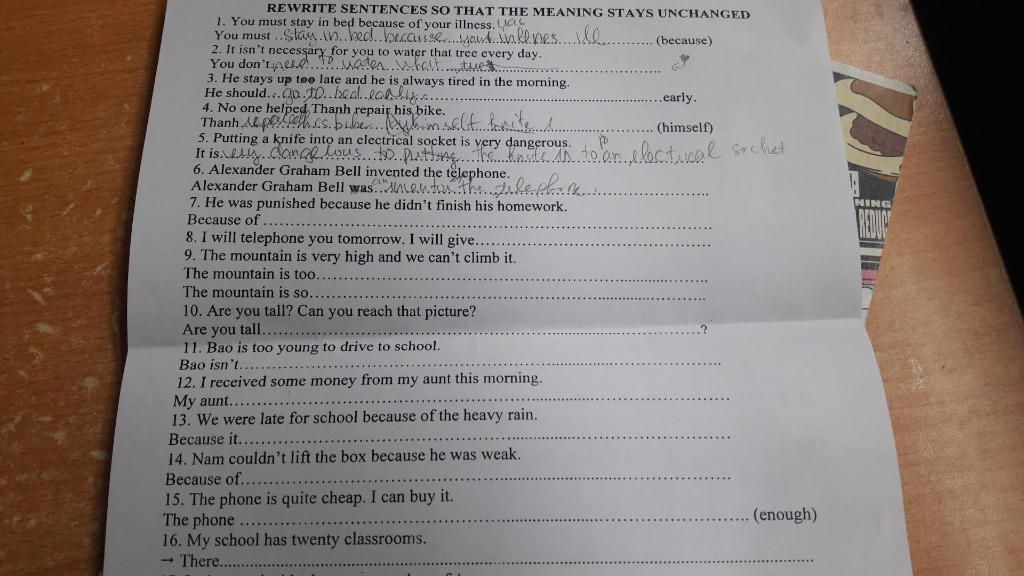 REWRITE SENTENCES SO THAT THE MEANING STAYS UNCHANGED
1. You must stay in bed because of your illness.
You must ..stay in bed because your illnes ill............ (because)
2. It isn't necessary for you to water that tree every day.
You don't need to water
3. He stays up too late and he is always tired in the morning.
He should...go to bed early..............................early.
4. No one helped Thanh repair his bike.
Thanh bike (himself)
5. Putting a knife into an electrical socket is very dangerous.
It is to putting the knife in to an electrical socket
6. Alexander Graham Bell invented the telephone.
Alexander Graham Bell was the telephone
7. He was punished because he didn't finish his homework.
Because of ..........................................................
8. I will telephone you tomorrow. I will give..............................
9. The mountain is very high and we can't climb it.
The mountain is too..................................................
The mountain is so..................................................
10. Are you tall? Can you reach that picture?
Are you tall..........................................................?
11. Bao is too young to drive to school.
Bao isn't..........................................................
12. I received some money from my aunt this morning.
My aunt..........................................................
13. We were late for school because of the heavy rain.
Because it..........................................................
14. Nam couldn't lift the box because he was weak.
Because of..........................................................
15. The phone is quite cheap. I can buy it.
The phone .......................................................... (enough)
16. My school has twenty classrooms.
→ There..........................................................
NING
REDUC